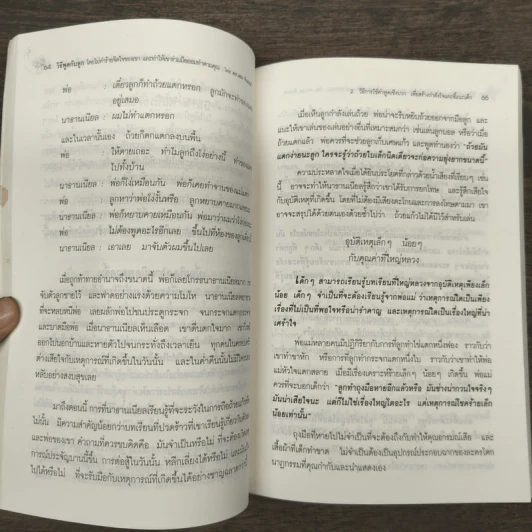 ๖๔ วิธีพูดกับลูก
พ่อ : เดี๋ยวลูกก็ทำถ้วยแตกหรอก ลูกมักจะทำ
อยู่เสมอ
นาธานเนียล : ผมไม่ทำแตกหรอก
และในเวลานั้นเอง ถ้วยก็ตกแตกลงบนพื้น
พ่อ : ให้ตายเถอะ ทำไมลูกถึงโง่อย่างนี้ ทำของ
ไปทั้งบ้าน
นาธานเนียล : พ่อก็โง่เหมือนกัน พ่อก็เคยทำจานของแม่
พ่อ : ลูกหาว่าพ่อโง่งั้นหรือ ลูกหยาบคายมาก
นาธานเนียล : พ่อก็หยาบคายเหมือนกัน พ่อมาว่าผมโง่
พ่อ : ไม่ต้องพูดอะไรอีกเลย ขึ้นไปที่ห้องของลูก
นาธานเนียล : เอาเลย มาจับตัวผมขึ้นไปเลย
เมื่อถูกท้าทายอำนาจถึงขนาดนี้ พ่อก็เลยโกรธนาธานเนียลมาก
จับตัวลูกชายไว้ และฟาดอย่างแรงด้วยความโมโห นาธานเนียล
ที่จะหลบหนีพ่อ เลยผลักพ่อไปชนประตูกระจก จนกระจกแตก
และบาดมือพ่อ เมื่อนาธานเนียลเห็นเลือด เขาตื่นตกใจมาก
ออกไปนอกบ้านและหายตัวไปจนกระทั่งถึงเวลาเย็น ทุกคนในครอบครัว
ต่างเสียใจกับเหตุการณ์ที่เกิดขึ้นในวันนั้น และในค่ำคืนนั้นไม่มีใคร
หลับอย่างสงบสุขเลย
มาถึงตอนนี้ การที่นาธานเนียลเรียนรู้ที่จะระวังในการถือถ้วย
นั้น มีความสำคัญน้อยกว่าบทเรียนที่ปวดร้าวที่เขาเรียนรู้เกี่ยวกับตัวเขา
และพ่อของเขา คำถามที่ควรขบคิดคือ มันจำเป็นหรือไม่ ที่จะต้อง
การณ์ประจัญบานนี้ขึ้น การต่อสู้ในวันนั้น หลีกเลี่ยงได้หรือไม่
ไปได้หรือไม่ ที่จะรับมือกับเหตุการณ์ที่เกิดขึ้นได้อย่างชาญฉลาด
๖๕
เมื่อเห็นลูกกำลังเล่นถ้วย พ่อน่าจะรีบหยิบถ้วยออกจากมือลูก และ
แนะให้เขาเล่นของเล่นอย่างอื่นที่เหมาะสมกว่า เช่นเล่นลูกบอล หรือว่าเมื่อ
ถ้วยแตกแล้ว พ่อควรที่จะช่วยลูกเก็บเศษแก้ว และพูดทำนองว่า "ถ้วยมัน
แตกง่ายนะลูก ใครจะรู้ว่าถ้วยใบเล็กนิดเดียวจะก่อความยุ่งยากขนาดนี้"
ความประหลาดใจเมื่อได้ยินประโยคที่กล่าวด้วยน้ำเสียงที่เรียบๆ เช่น
นี้ อาจจะทำให้นาธานเนียลรู้สึกว่า เขาได้รับการยกโทษ และรู้สึกเสียใจ
กับอุบัติเหตุที่เกิดขึ้น โดยที่ไม่ต้องมีเสียงตะโกนและการลงโทษตามมา เขา
อาจจะสรุปได้ด้วยตนเองด้วยซ้ำไปว่า ถ้วยแก้วไม่ได้มีไว้สำหรับเล่น
อุบัติเหตุเล็กๆ น้อยๆ
กับคุณค่าที่ใหญ่หลวง
เด็กๆ สามารถเรียนรู้บทเรียนที่ใหญ่หลวงจากอุบัติเหตุเพียงเล็ก
น้อย เด็กๆ จำเป็นที่จะต้องเรียนรู้จากพ่อแม่ ว่าเหตุการณ์ใดเป็นเพียง
เรื่องที่ไม่เป็นที่พอใจหรือน่ารำคาญ และเหตุการณ์ใดเป็นเรื่องใหญ่ที่น่า
เศร้าใจ
พ่อแม่หลายคนมีปฏิกิริยากับการที่ลูกทำไข่แตกหนึ่งฟอง ราวกับว่า
เขาทำขาหัก หรือการที่ลูกทำกระจกแตกหนึ่งใบ ราวกับว่าเขาทำให้พ่อ
แม่หัวใจแตกสลาย เมื่อมีเรื่องเคราะห์ร้ายเล็กๆ น้อยๆ เกิดขึ้น พ่อแม่
ควรที่จะบอกเด็กว่า "ลูกทำถุงมือหายอีกแล้วหรือ มันช่างน่ากวนใจจริงๆ
มันน่าเสียใจนะ แต่ก็ไม่ใช่เรื่องใหญ่โตอะไร แค่เหตุการณ์โชคร้ายเล็ก
น้อยเท่านั้น"
ถุงมือที่หายไปไม่จำเป็นที่จะต้องถึงกับทำให้คุณอารมณ์เสีย และ
เสื้อผ้าที่เด็กทำขาด ไม่จำเป็นต้องเป็นอุปกรณ์ประกอบฉากของละครโศก
นาฏกรรมที่คุณกำกับและนำแสดงเอง